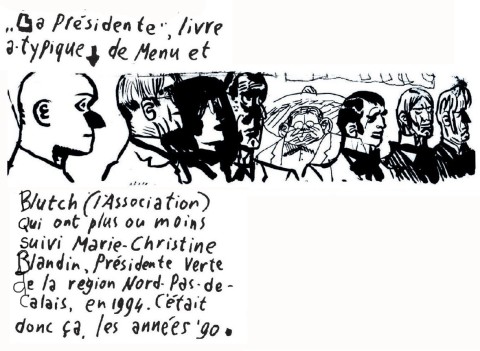 „La Présidente", livre
a-typique de Menu et
Blutch (l'Association)
qui ont plus ou moins
suivi Marie-Christine
Blandin, Présidente Verte
de la région Nord-Pas-de-
Calais, en 1994. C'était
donc ça, les années '90.